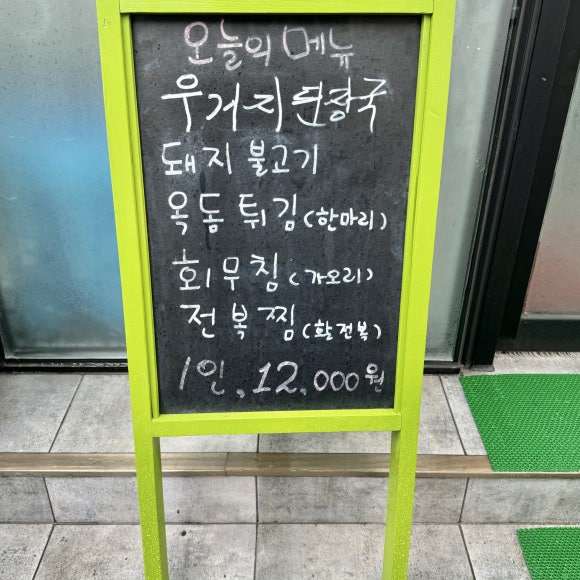 오늘의 메뉴
우거지 된장국
돼지 불고기
옥돔 튀김 (한마리)
회무침 (가오리)
전복찜 (활전복)
1인, 12,000원